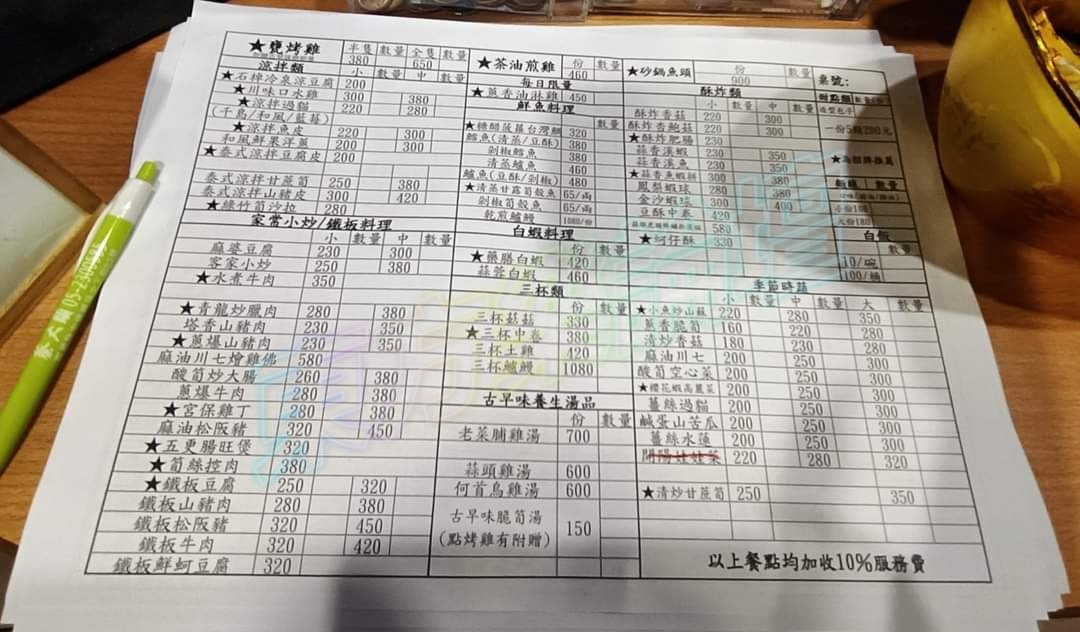 ★鹽烤雞 半隻 數量 全隻 數量
380 650
涼拌類 小 數量 中 數量
★石棹冷泉涼豆腐 200
★川味口水雞 300 380
★涼拌過貓 220 280
(千島/和風/藍莓)
★涼拌魚皮 220 300
和風鮮果洋蔥 200 300
★泰式涼拌豆腐皮 200
泰式涼拌甘蔗筍 250 380
泰式涼拌山豬皮 300 420
★綠竹筍沙拉 280
家常小炒/鐵板料理
小 數量 中 數量
麻婆豆腐 230 300
客家小炒 250 380
★水煮牛肉 350
★青龍炒臘肉 280 380
塔香山豬肉 230 350
★蔥爆山豬肉 230 350
麻油川七燴雞佛 580
酸筍炒大腸 260 380
蔥爆牛肉 280 380
★宮保雞丁 280 380
麻油松阪豬 320 450
★五更腸旺煲 320
★筍絲控肉 380
★鐵板豆腐 250 320
鐵板山豬肉 280 380
鐵板松阪豬 320 450
鐵板牛肉 320 420
鐵板鮮蚵豆腐 320
★茶油煎雞 份 數量
460
每日限量
★蔥香油淋雞 450
鮮魚料理
數量
★糖醋菠蘿台灣鯛 320
鱈魚(清蒸/豆酥) 380
剁椒鱈魚 380
清蒸鱸魚 460
鱸魚(豆酥/剁椒) 480
★清蒸甘露筍殼魚 65/兩
剁椒筍殼魚 65/兩
乾煎鱸鰻 1080/份
白蝦料理
份 數量
★藥膳白蝦 420
蒜蓉白蝦 460
三杯類
份 數量
三杯菇菇 330
★三杯中卷 380
三杯土雞 420
三杯鱸鰻 1080
古早味養生湯品
份 數量
老菜脯雞湯 700
蒜頭雞湯 600
何首烏雞湯 600
古早味脆筍湯 150
(點烤雞有附贈)
★砂鍋魚頭 份 數量
900
酥炸類
小 數量 中 數量
酥炸香菇 220 300
酥炸杏鮑菇 220 300
★酥炸肥腸 230
蒜香溪蝦 230 350
蒜香溪魚 230 350
★蒜香魚蝦餅 300 380
鳳梨蝦球 280 380
金沙蝦球 300 400
豆酥中卷 420
580
★蚵仔酥 330
桌號:
一份5顆200元
數量
小份100
大份180
白飯
數量
10/碗
100/桶
季節時蔬
小 數量 中 數量 大 數量
★小魚炒山蘇 220 280 350
蔥香脆筍 160 220 280
清炒香菇 180 230 280
麻油川七 200 250 300
酸筍空心菜 200 250 300
★櫻花蝦高麗菜 200 250 300
薑絲過貓 200 250 300
鹹蛋山苦瓜 200 250 300
薑絲水蓮 200 250 300
開陽娃娃菜 220 280 320
★清炒甘蔗筍 250 350
以上餐點均加收10%服務費